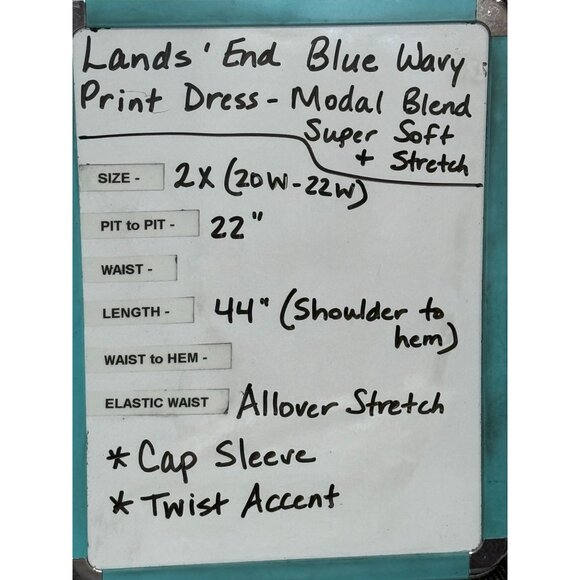 Lands' End Blue Wavy
Print Dress - Modal Blend
Super Soft
+ Stretch
SIZE - 2X (20W-22W)
PIT to PIT - 22"
WAIST -
LENGTH - 44" (Shoulder to
hem)
WAIST to HEM -
ELASTIC WAIST Allover Stretch
* Cap Sleeve
* Twist Accent